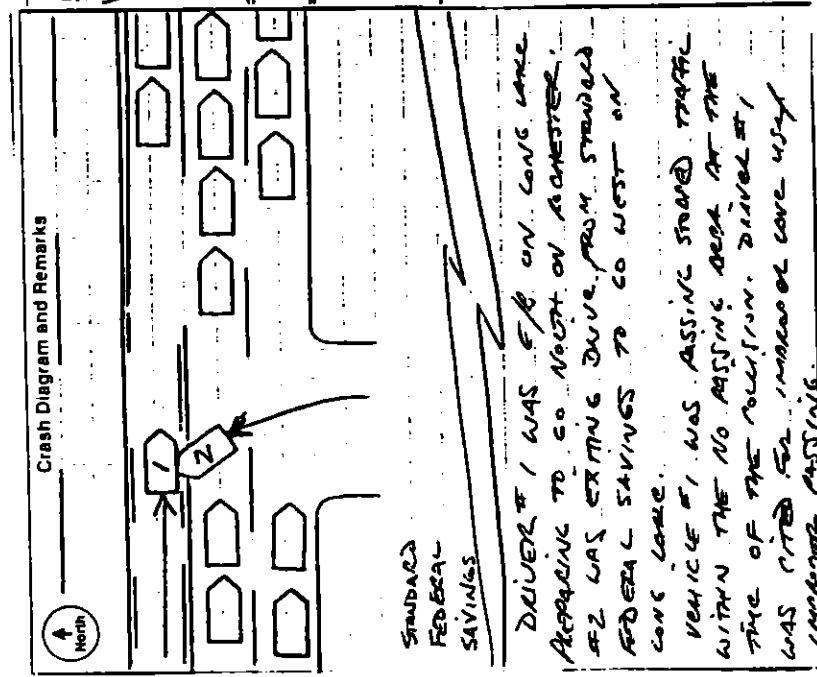 Crash Diagram and Remarks
North
1
2
STANDARD
FEDERAL
SAVINGS
DRIVER #1 WAS E/B ON LONG LAKE
PREPARING TO GO NORTH ON ROCHESTER.
#2 WAS EXITING DRIVE FROM STANDARD
FEDERAL SAVINGS TO GO WEST ON
LONG LAKE.
VEHICLE #1 WAS PASSING STOPPED TRAFFIC
WITHIN THE NO PASSING AREA AT THE
TIME OF THE COLLISION. DRIVER #1
WAS CITED FOR IMPROPER LANE USE/
IMPROPER PASSING.